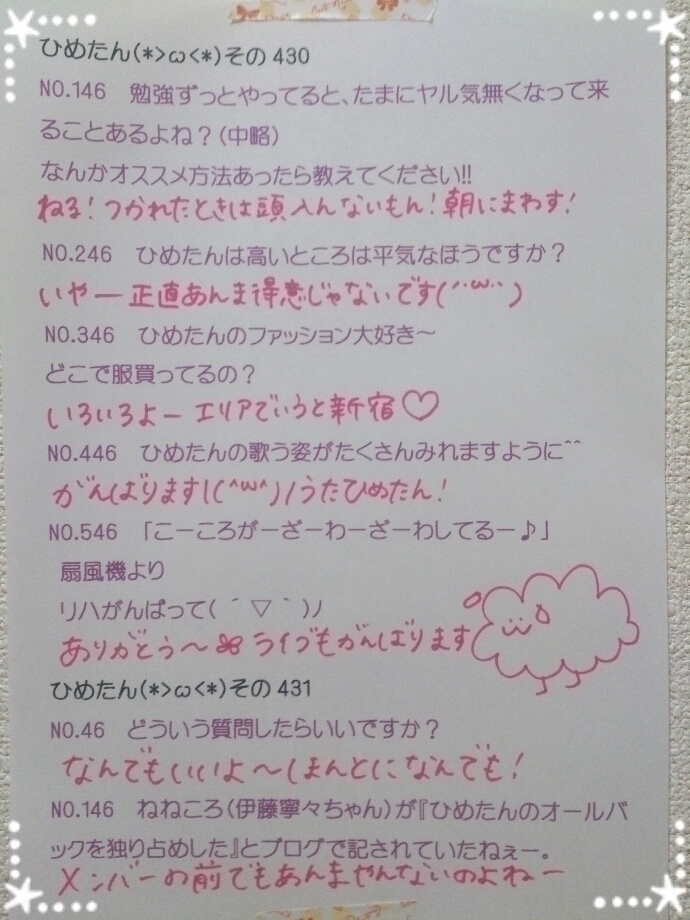 ひめたん(*>ω<*)その430
NO.146　勉強ずっとやってると、たまにヤル気無くなって来
ることあるよね？(中略)
なんかオススメ方法あったら教えてください!!
ねる！つかれたときは頭入んないもん！朝にまわす！
NO.246　ひめたんは高いところは平気なほうですか？
いやー正直あんま得意じゃないです(´･ω･｀)
NO.346　ひめたんのファッション大好き～
どこで服買ってるの？
いろいろよーエリアでいうと新宿♡
NO.446　ひめたんの歌う姿がたくさんみれますように^^
がんばります!(^ω^)/うたひめたん！
NO.546　「こーころがーざーわーざーわしてるー♪」
扇風機より
リハがんばって(　´▽｀)ﾉ
ありがとう～ ライブもがんばります
ひめたん(*>ω<*)その431
NO.46　どういう質問したらいいですか？
なんでもいいよ～ほんとになんでも！
NO.146　ねねころ(伊藤寧々ちゃん)が『ひめたんのオールバ
ックを独り占めした』とブログで記されていたねぇー。
メンバーの前でもあんまやんないのよねー